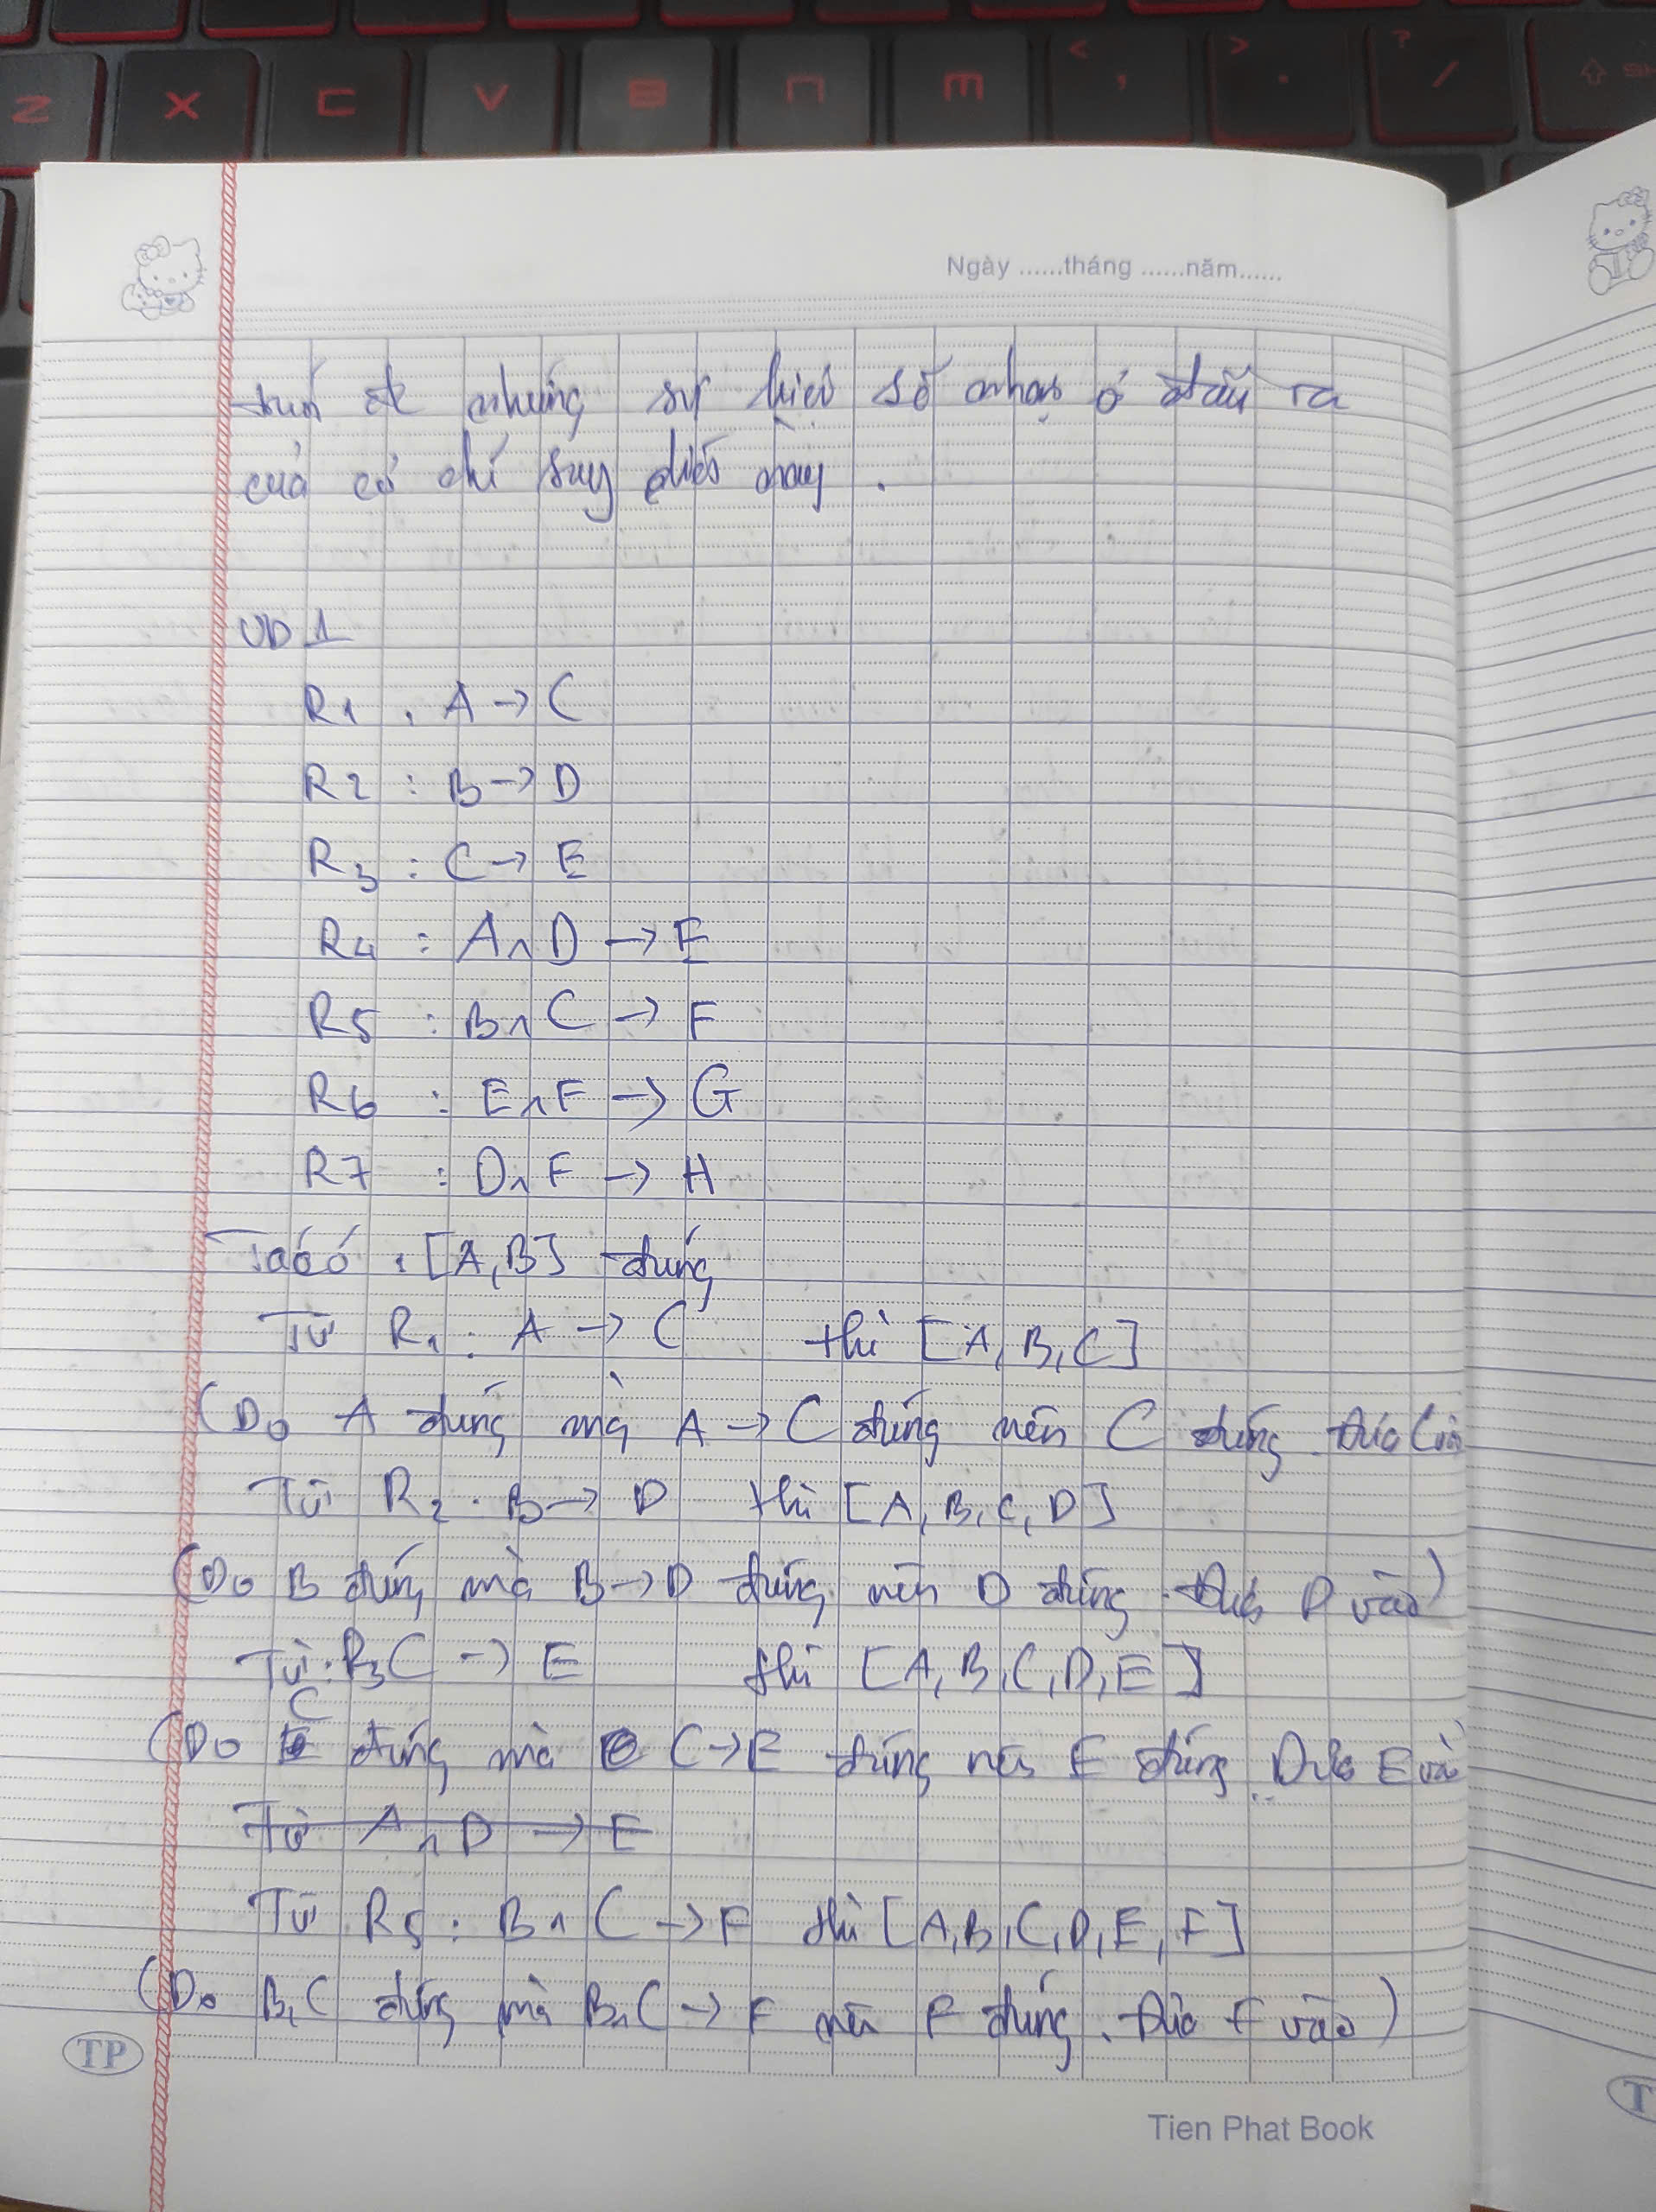 Z X C V B N M < , > . ? /
Ngày ......tháng ......năm......
những sự kiện số nhau ở đầu ra
của cơ chế suy diễn này .
VD 1
R1 : A → C
R2 : B → D
R3 : C → E
R4 : A ∧ D → E
R5 : B ∧ C → F
R6 : E ∧ F → G
R7 : D ∧ F → H
Ta có : [A, B] đúng
Từ R1 : A → C thì [A, B, C]
(Do A đúng mà A → C đúng nên C đúng. Đưa C vào
Từ R2 : B → D thì [A, B, C, D]
(Do B đúng mà B → D đúng nên D đúng. Đưa D vào)
Từ R3 C → E thì [A, B, C, D, E]
(Do C đúng mà C → E đúng nên E đúng. Đưa E vào
Từ A ∧ D → E
Từ R5 : B ∧ C → F thì [A, B, C, D, E, F]
(Do B, C đúng mà B ∧ C → F nên F đúng. Đưa F vào)
TP
Tien Phat Book